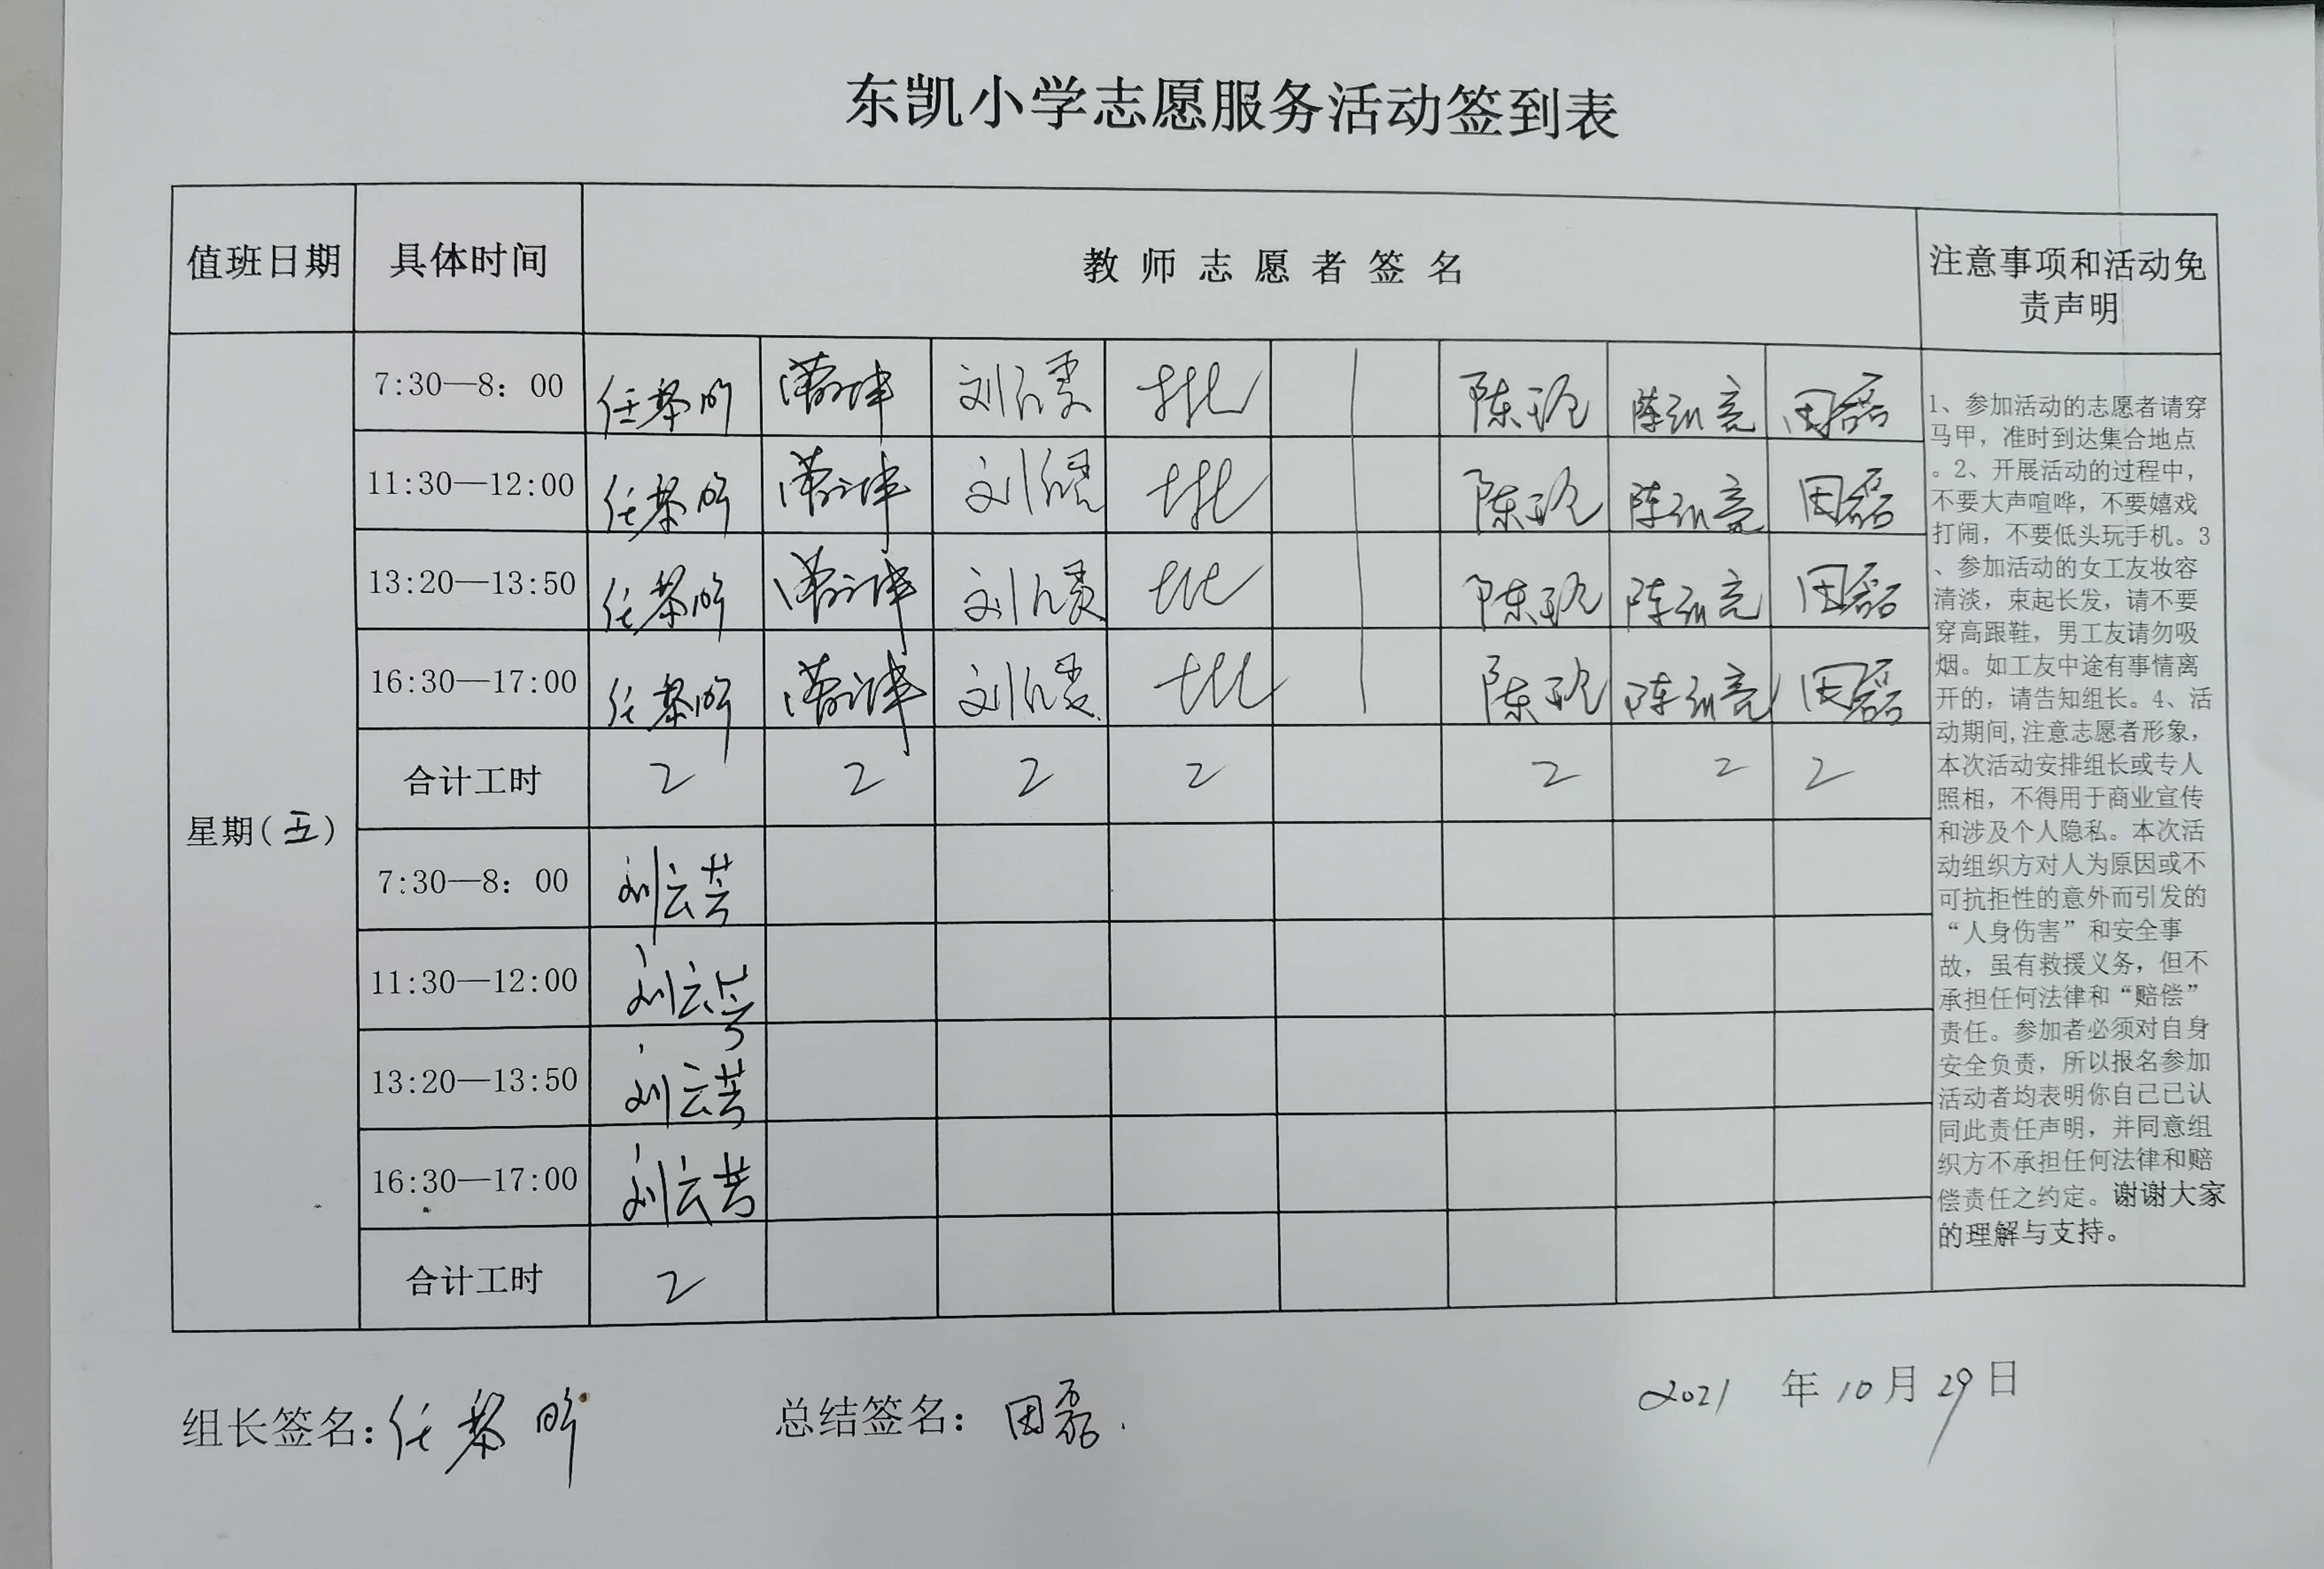 东凯小学志愿服务活动签到表
值班日期 具体时间 教师志愿者签名 注意事项和活动免
责声明
7:30—8：00 任黎明 陈玲 田磊
11:30—12:00 任黎明 陈玲 田磊
13:20—13:50 任黎明 陈玲 田磊
16:30—17:00 任黎明 陈玲 田磊
合计工时 2 2 2 2 2 2 2
星期(五)
7:30—8：00 刘云芳
11:30—12:00 刘云芳
13:20—13:50 刘云芳
16:30—17:00 刘云芳
合计工时 2
1、参加活动的志愿者请穿
马甲，准时到达集合地点
。2、开展活动的过程中，
不要大声喧哗，不要嬉戏
打闹，不要低头玩手机。3
、参加活动的女工友妆容
清淡，束起长发，请不要
穿高跟鞋，男工友请勿吸
烟。如工友中途有事情离
开的，请告知组长。4、活
动期间,注意志愿者形象，
本次活动安排组长或专人
照相，不得用于商业宣传
和涉及个人隐私。本次活
动组织方对人为原因或不
可抗拒性的意外而引发的
“人身伤害”和安全事
故，虽有救援义务，但不
承担任何法律和“赔偿”
责任。参加者必须对自身
安全负责，所以报名参加
活动者均表明你自己已认
同此责任声明，并同意组
织方不承担任何法律和赔
偿责任之约定。谢谢大家
的理解与支持。
组长签名：任黎明 总结签名：田磊. 2021 年 10 月 29 日